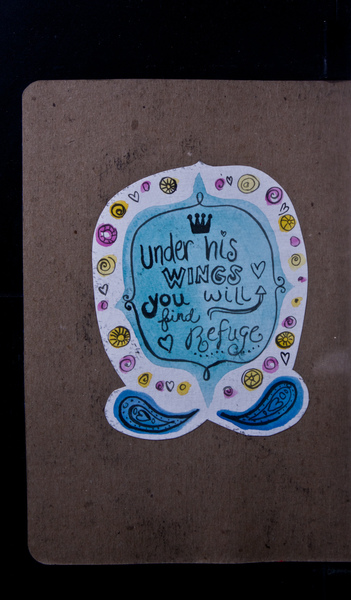 Under his
WINGS
you will
find
Refuge